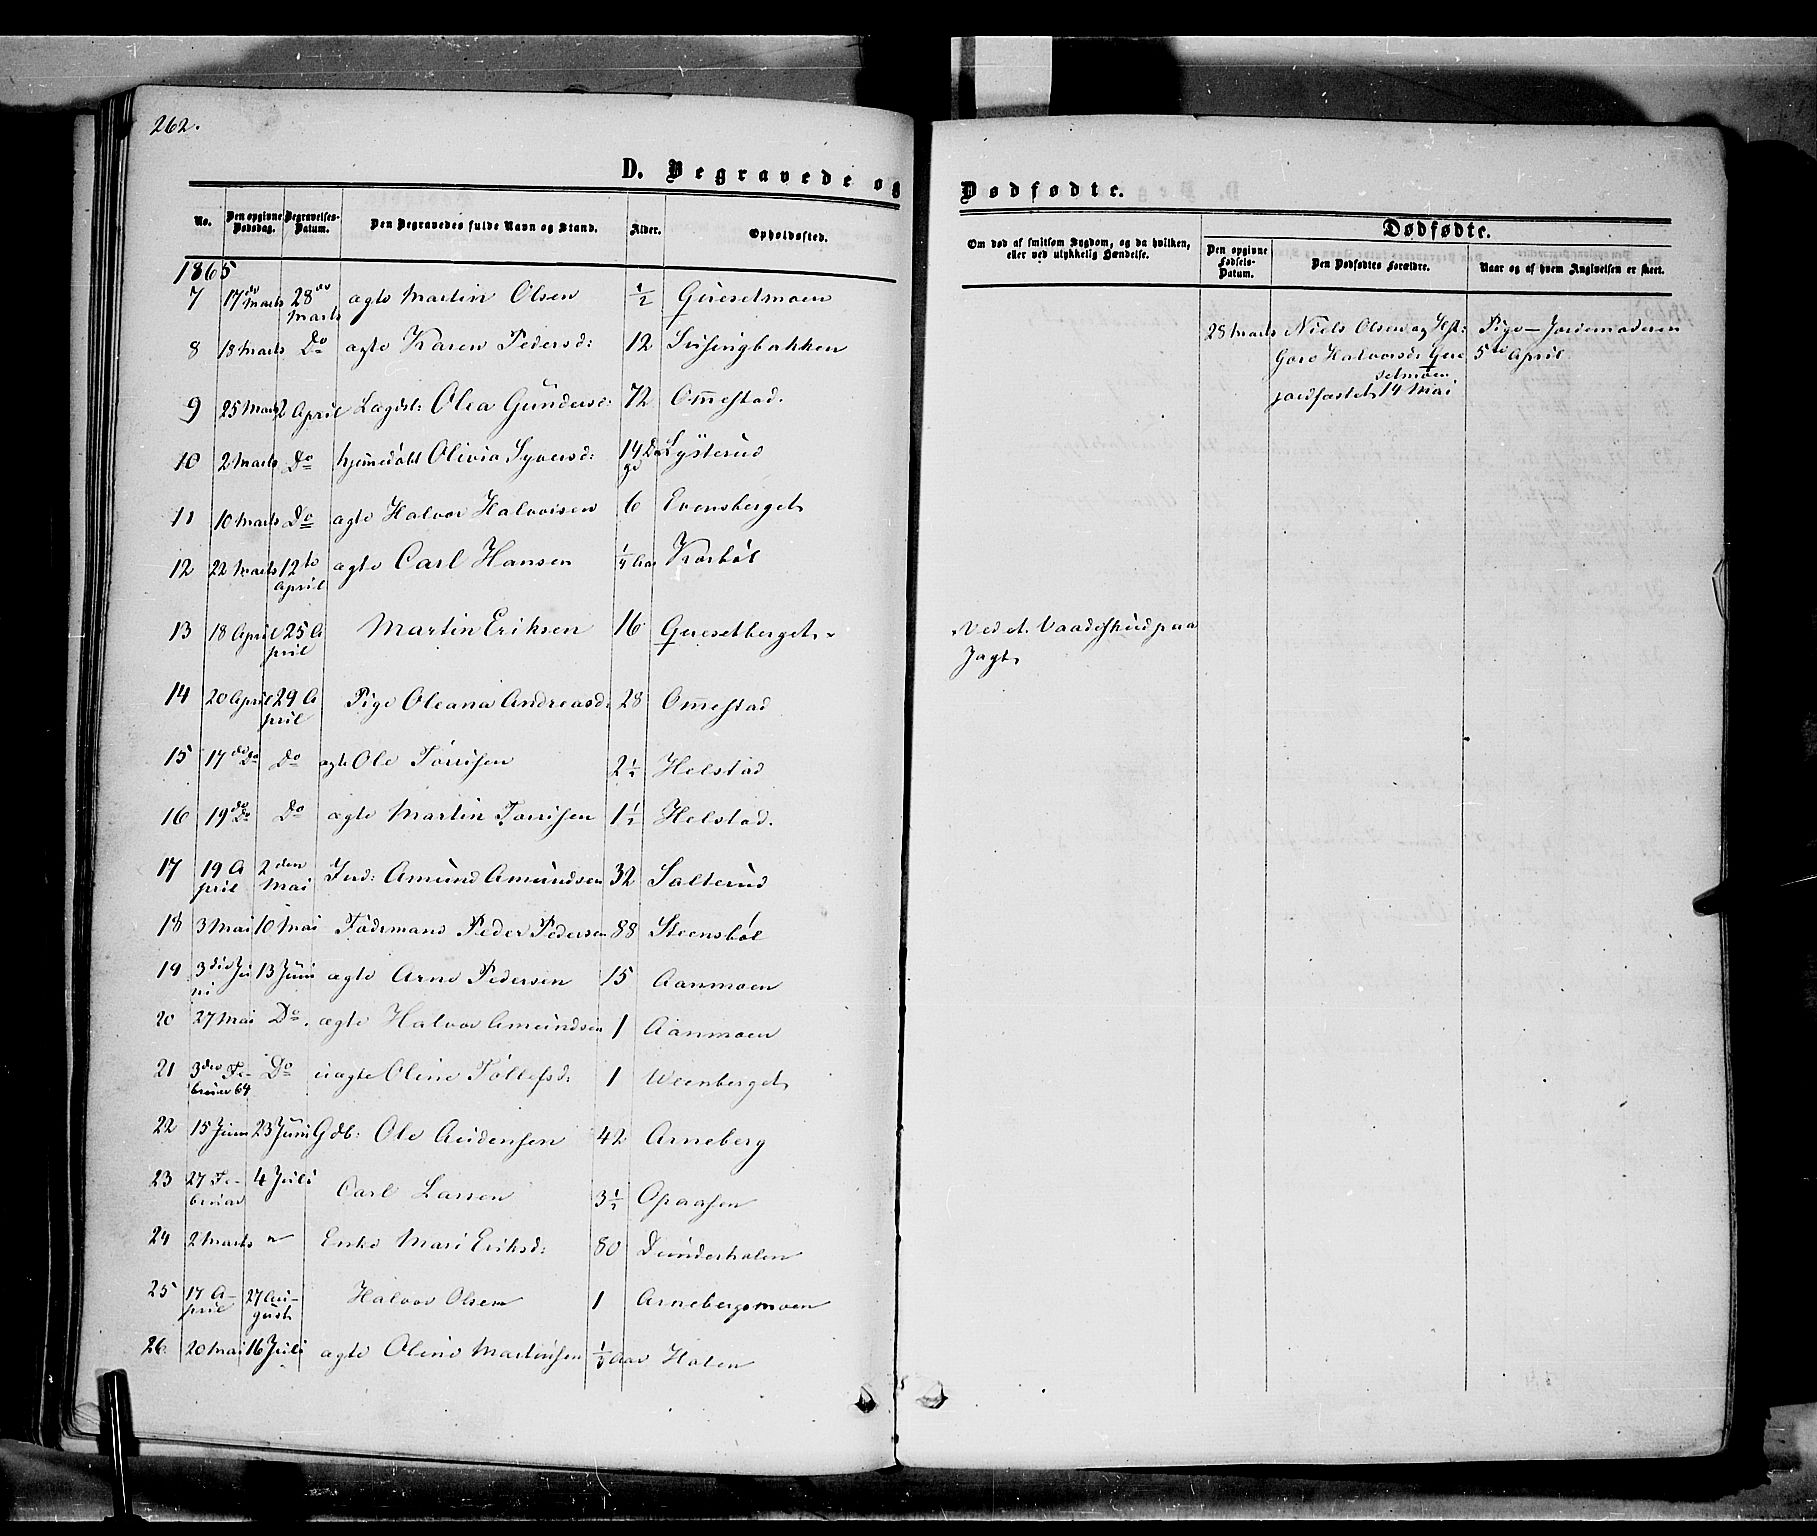 262.
D. Begravede og Dødfødte.
No. Den opgivne Dødsdag. Begravelses-Datum. Den Begravedes fulde Navn og Stand. Alder. Opholdssted.
Om død af smitsom Sygdom, og da hvilken, eller ved ulykkelig Hændelse.
Dødfødte.
Den opgivne Fødsels-Datum. Den Dødfødtes Forældre. Naar og af hvem Angivelsen er skeet.
1865
7 17de Marts 28de Marts ægte Martin Olsen 1/2 Gjeesetmoen
8 18 Marts Do ægte Karen Pedersd: 12 Sussingbakken
9 25 Marts 2 April Lægdsl: Olea Gundersd: 72 Ommestad.
10 2 Marts Do hjemedøbt Olivia Syversd: 14 Dage Lysterud
11 10 Marts Do ægte Halvor Halvorsen 6 Evensberget
12 22 Marts 12te April ægte Carl Hansen 1/4 Aar Korsbøl
13 18 April 25 April Martin Eriksen 16 Gjeesetberget
Ved et Vaadeskud paa
Jagt
14 20 April 29 April Pige Oleana Andreasd: 28 Ommestad
15 17de Do Do ægte Ole Torrisen 2 1/2 Helstad
16 19de Do Do ægte Martin Torrisen 1 1/2 Helstad.
17 19 April 2den Mai Ind: Amund Amundsen 32 Salterud
18 3 Mai 10 Mai Födrmand Peder Pedersen 88 Steensbøl
19 3die Juni 13 Juni ægte Arne Pedersen 15 Aanmoen
20 27 Mai Do. ægte Halvor Amundsen 1 Aanmoen
21 3die Februar 64 Do uægte Oline Tollefsd: 1 Weenberget
22 15 Juni 23 Juni Gdb: Ole Audensen 42 Arneberg
23 27 Februar 4 Juli Carl Larsen 3 1/2 Opaasen
24 2 Marts " Enke Mari Eriksd: 80 Dunderholen
25 17 April 27 August Halvor Olsen 1 Arnebergsmoen
26. 20 Mai 16 Juli ægte Oline Martinsen 1/3 Aar Holen
28 Marts Niels Olsen og Hst: Pige – Jordemoderen
Gore Halvorsd: Gjeesetmoen 5te April
jordfæstet 14 Mai